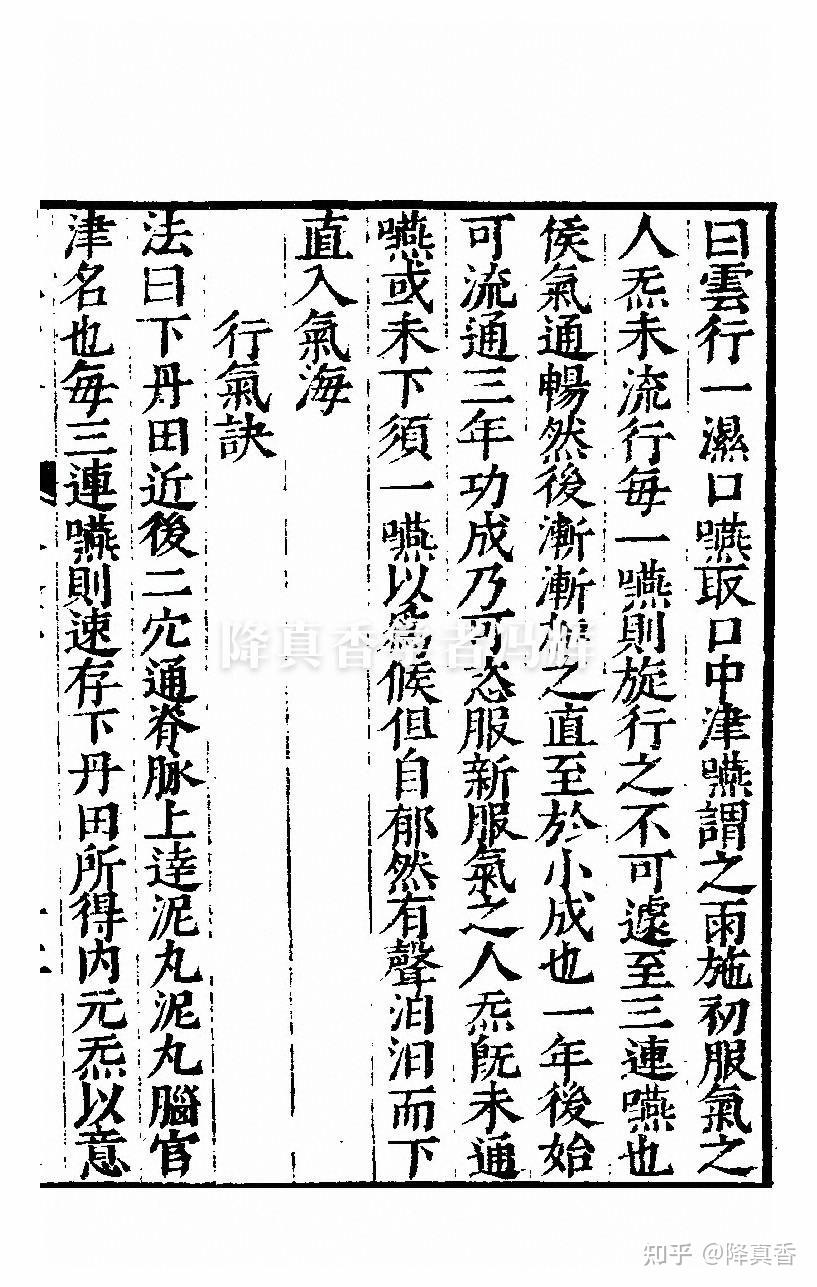 曰雲行一濕口嚥取口中津嚥謂之雨施初服氣之
人炁未流行每一嚥則旋行之不可遽至三連嚥也
候氣通暢然後漸漸加之直至於小成也一年後始
可流通三年功成乃可恣服新服氣之人炁既未通
嚥或未下須一嚥以爲候但自郁然有聲汩汩而下
直入氣海
行氣訣
法曰下丹田近後二穴通脊脉上達泥丸泥丸腦宮
津名也每三連嚥則速存下丹田所得内元炁以意
知乎 @降真香